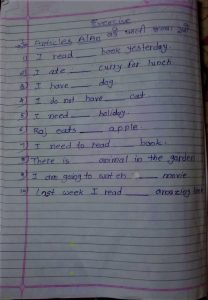 Exercise
Articles A/An की खाली जगह
1) I read ____ book yesterday.
2) I ate ____ curry for lunch
3) I have ____ dog.
4) I do not have ____ cat
5) I need ____ holiday.
6) Raj eats ____ apple.
7) I need to read ____ book.
8) There is ____ animal in the garden
9) I am going to watch ____ movie
10) Last week I read ____ amazing